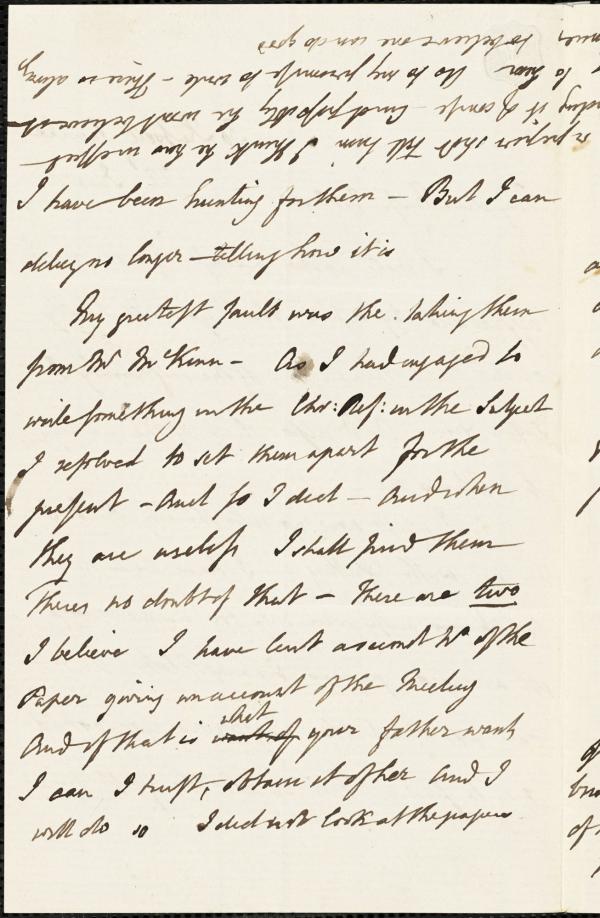 I have been hunting for them – But I can
delay no longer – telling how it is
My greatest fault was the taking them
from Mr McKinn – As I had engaged to
write something in the Chr: Ref: on the Subject
I resolved to set them apart for the
present – And so I did – And when
they are useless I shall find them
Theres no doubt of that – there are two
I believe I have lent a second No of the
Paper giving an account of the Meeting
And if that is what your father wants
I can I trust, obtain it of her And I
will do so I did not look at the papers
to believe one can do good
to hear to any promise to write – There is
it of course – And probably he would
shall tell him I think he has